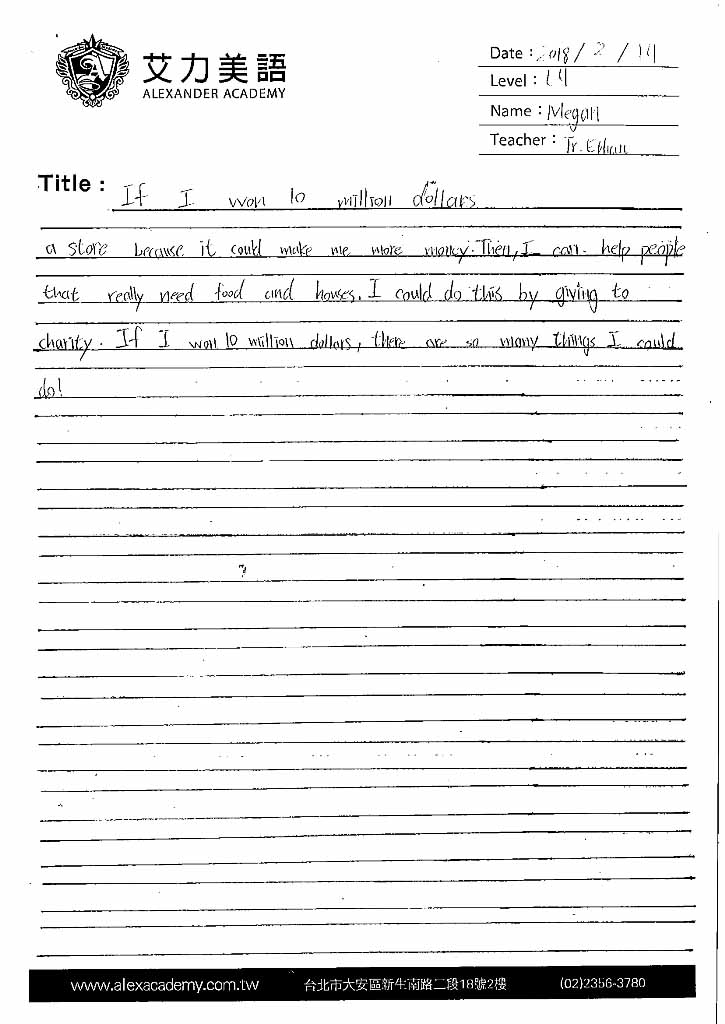 艾力美語
ALEXANDER ACADEMY
Date : 2018 / 2 / 14
Level : L4
Name : Megan
Teacher : Tr. Ethan
Title : If I won 10 million dollars
a store because it could make me more money. Then, I can help people
that really need food and houses. I could do this by giving to
charity. If I won 10 million dollars, there are so many things I could
do!
www.alexacademy.com.tw 台北市大安區新生南路二段18號2樓 (02)2356-3780